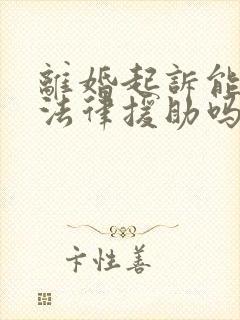 離婚起訴能
法律援助吗
卞性善